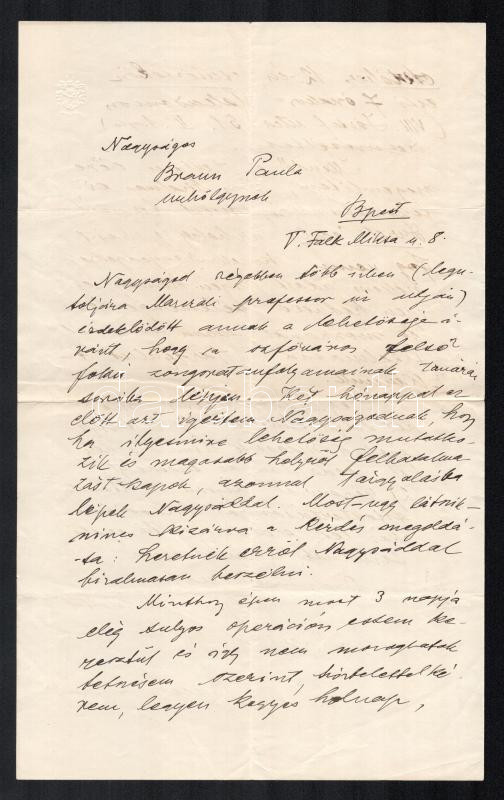 Nagyságos
Braun Paula
úrhölgynek
Bpest
V. Falk Miksa u. 8.
Nagyságod régebben több ízben (legu-
toljára professor úr útján)
érdeklődött annak a lehetősége i-
ránt, hogy a székesfőváros felső
fokú zongoratanfolyamainak tanárai
sorába lépjen. Két hónappal ez-
előtt azt igértem Nagyságodnak, hogy
ha ilyesmire lehetőség mutatko-
zik és magasabb helyről felhatalma-
zást kapok, azonnal tárgyalásba
lépek Nagysáddal. Most úgy látszik
nincs kizárva a kérdés megoldá-
sa: szeretnék erről Nagysáddal
bizalmasan beszélni.
Minthogy épen most 3 napja
elég súlyos operáción estem ke-
resztül és így nem mozoghatok
tetszésem szerint, tisztelettel ké-
rem, legyen kegyes holnap,